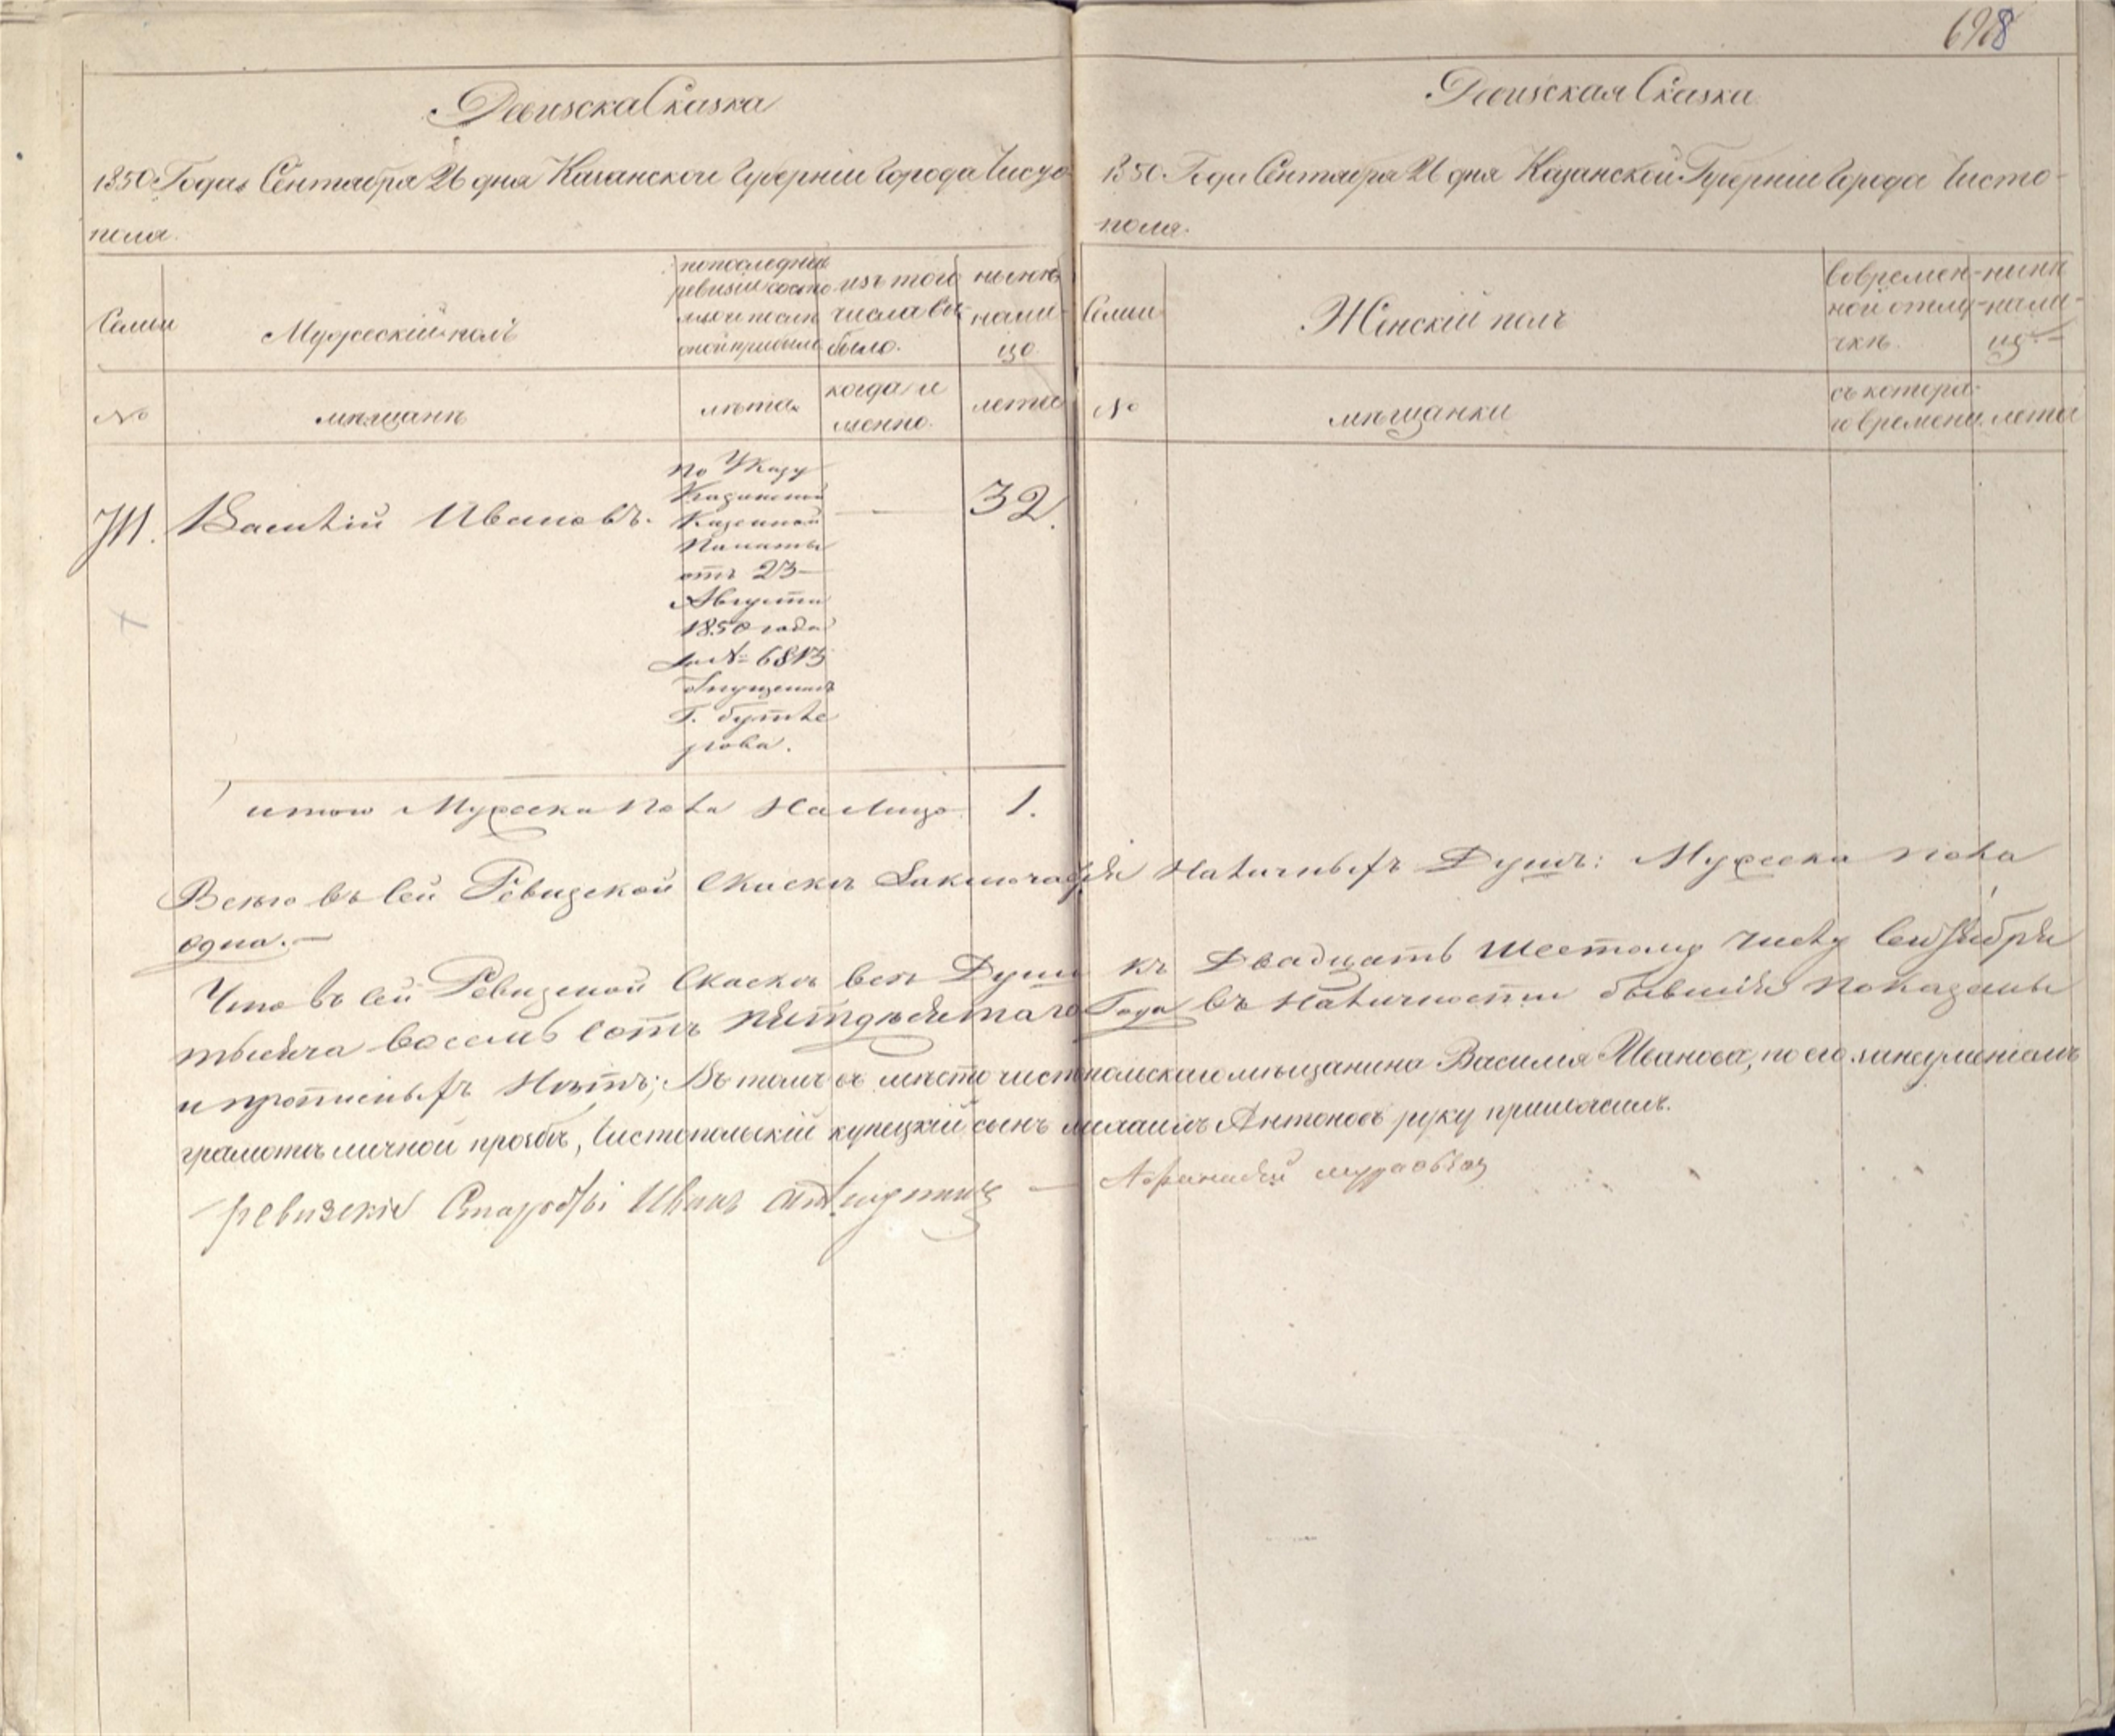 698
Ревизска Сказка
1850 Года Сентября 26 дня Казанской Губерніи Города Чисто
поля.
Семьи
Мужескій полъ
по последней
ревизіи состо
яло и послѣ
оной прибыло
изъ того
числа вы
было.
нынѣ
нали-
цо
№
мѣщанъ
лѣта
когда и
менно.
лета
Василій Ивановъ.
По Указу
Казанской
Казенной
Палаты
отъ 23
Августа
1850 года
за № 6813
отпущенъ
Г. Бутле
рова.
32.
итого Мужеска пола На лицо 1.
Ревизская Сказка
1850 Года Сентября 26 дня Казанской Губерніи Города Чисто-
поля.
Семьи
Женскій полъ
Во времен-
ной отлу-
чкѣ.
нынѣ
нали-
цо
№
мѣщанки
съ котора-
го времени
лета
Всего въ сей Ревизской Сказкѣ Заключается Наличныхъ Душъ: Мужеска пола
одна.—
Что въ сей Ревизской Сказкѣ все Души къ Двадцать Шестому Числу Сентября
тысяча восемь сотъ пятдесятаго Года въ Наличности бывшія показаны
и прописныхъ Нѣтъ; Въ томъ въ мѣсто чистопольскаго мѣщанина Василія Иванова, по его неуменіемъ
грамотѣ личной прозбѣ, Чистопольскій купецкій сынъ Михаилъ Антоновъ руку приложилъ.
ревизскіе Старосты Иванъ